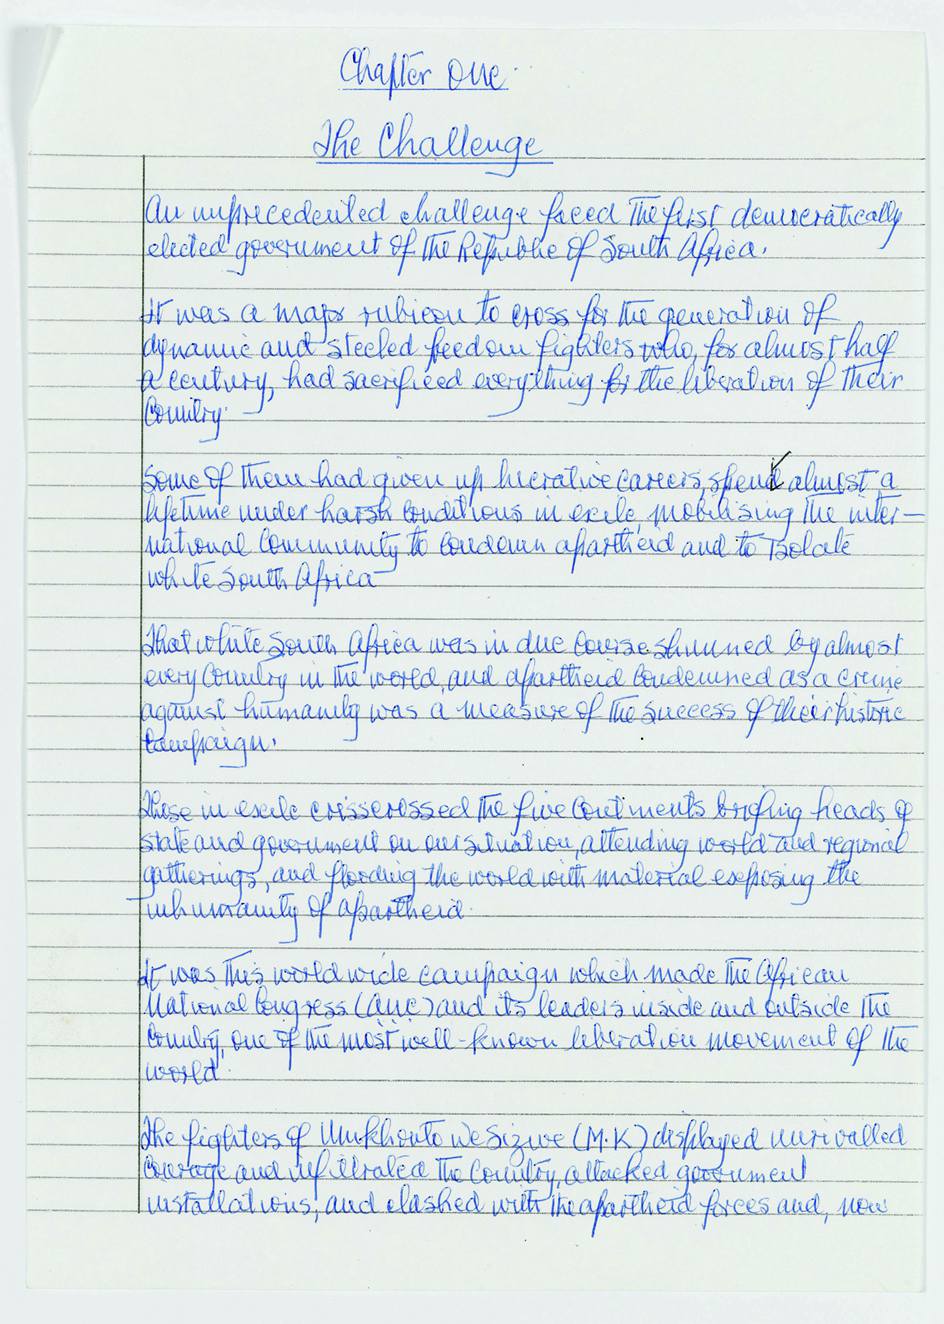 Chapter One.
The Challenge
An unprecedented challenge faced the first democratically
elected government of the Republic of South Africa.
It was a major rubicon to cross for the generation of
dynamic and steeled freedom fighters who, for almost half
a century, had sacrificed everything for the liberation of their
country.
Some of them had given up lucrative careers, spend almost a
lifetime under harsh conditions in exile, mobilising the inter-
national community to condemn apartheid and to isolate
white South Africa
That white South Africa was in due course shunned by almost
every country in the world, and apartheid condemned as a crime
against humanity was a measure of the success of their historic
campaign.
Those in exile crisscrossed the five continents briefing heads of
state and government on our situation, attending world and regional
gatherings, and flooding the world with material exposing the
inhumanity of apartheid.
It was this world wide campaign which made the African
National Congress (ANC) and its leaders inside and outside the
country, one of the most well-known liberation movement of the
world.
The fighters of Umkhonto WeSizwe (M.K) displayed unrivalled
courage and infiltrated the country, attacked government
installations, and clashed with the apartheid forces and, now